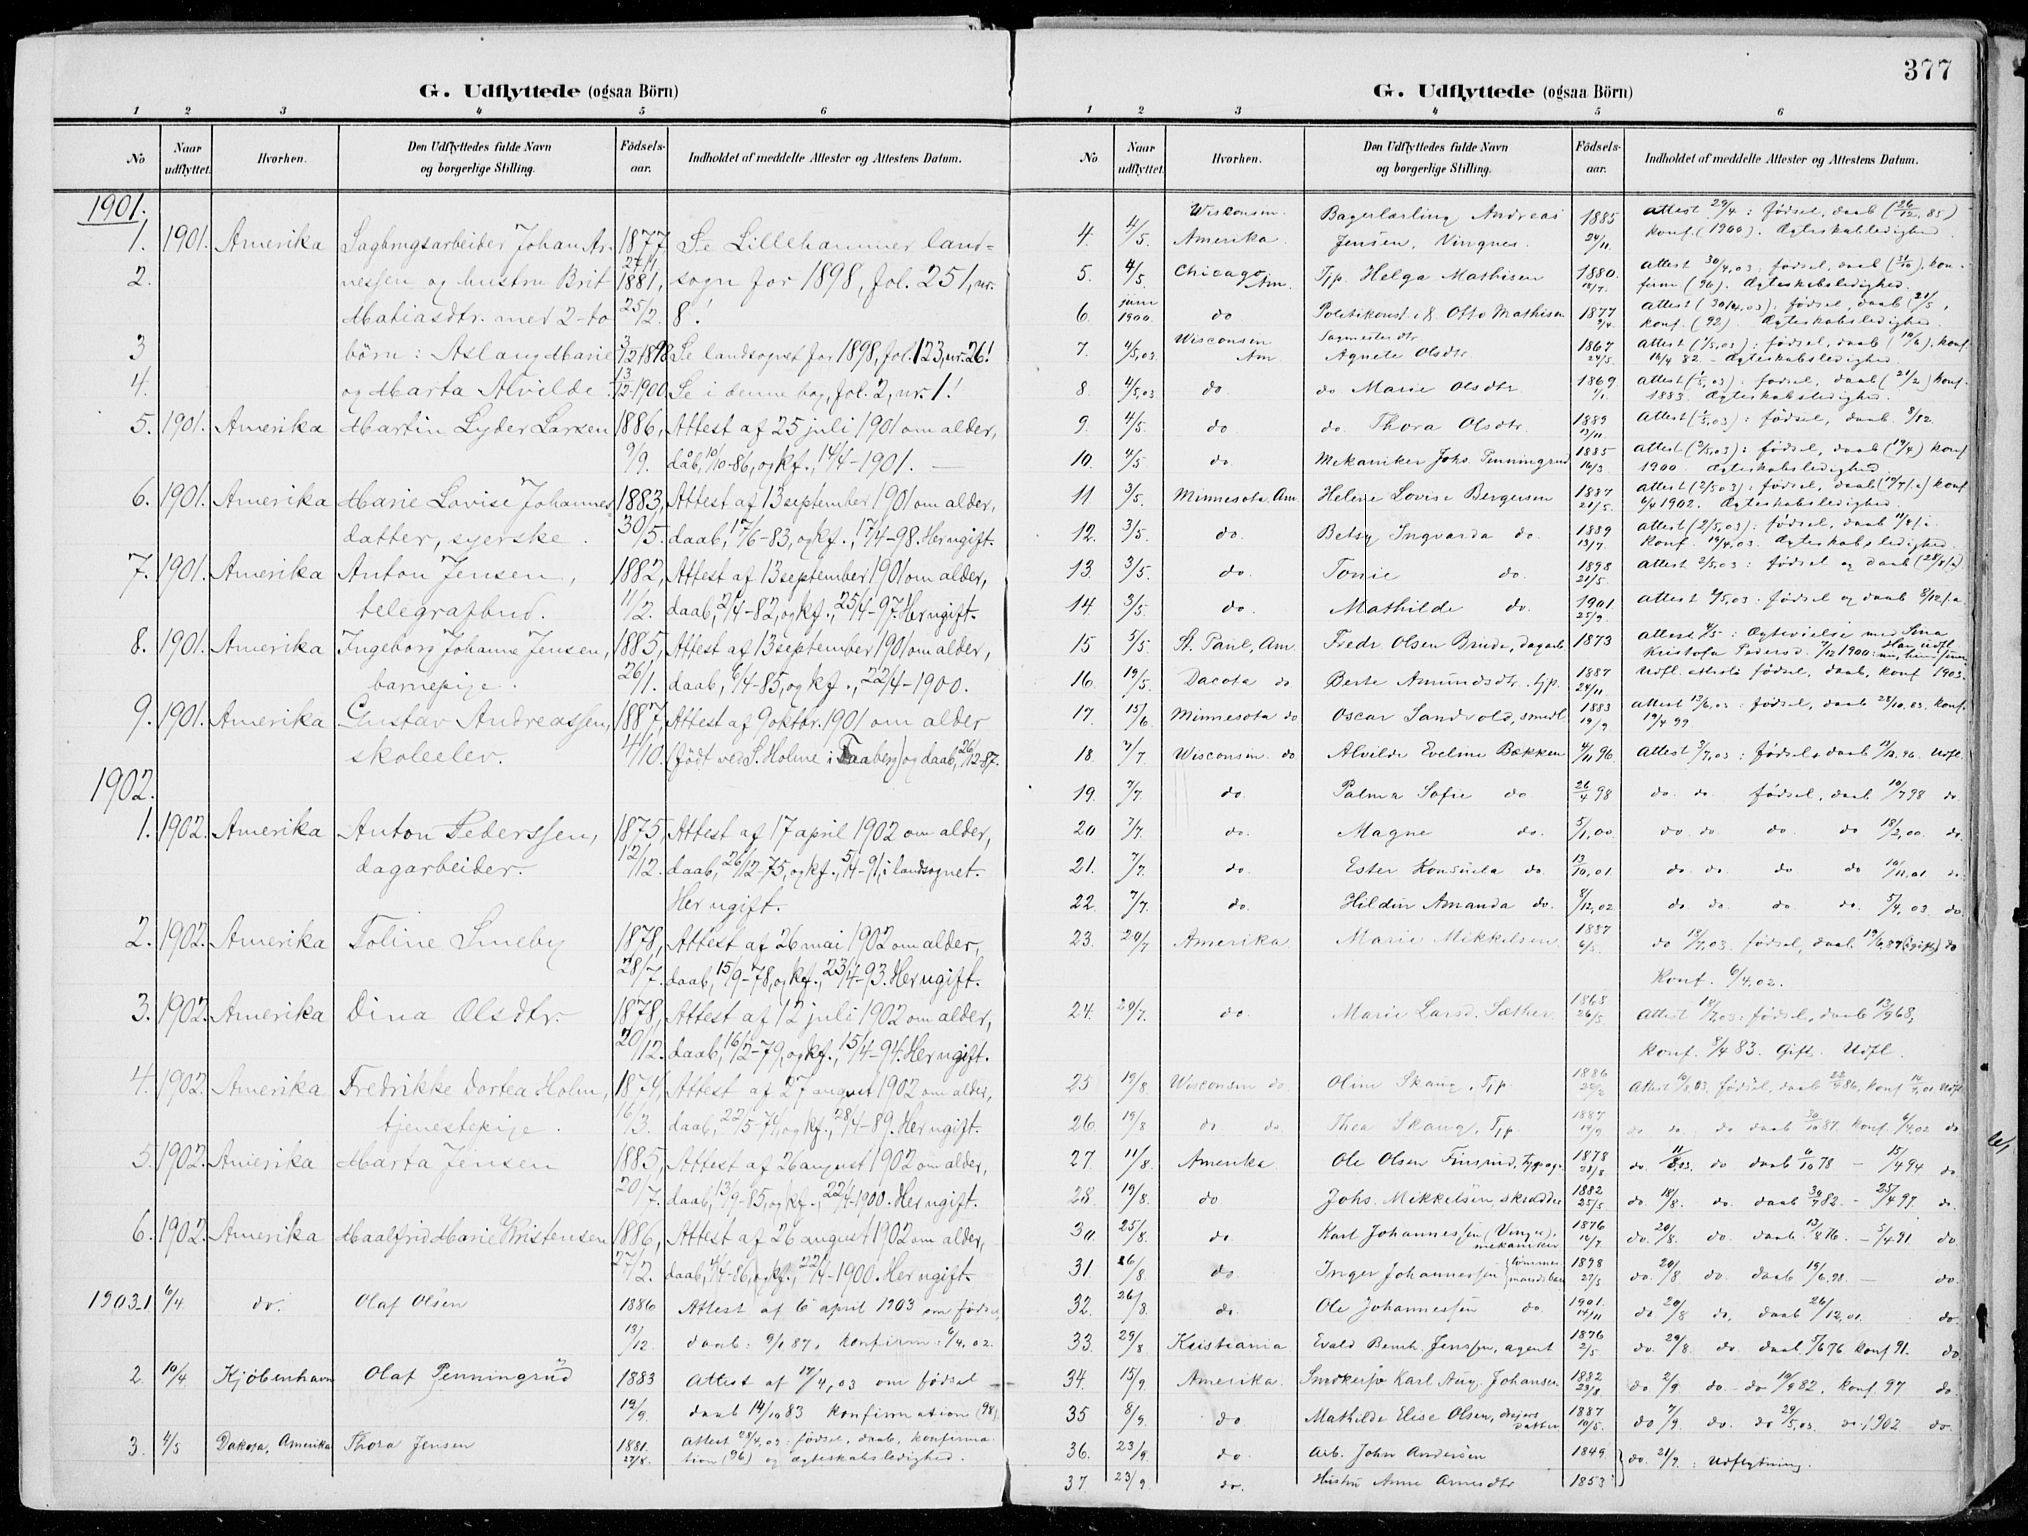 377
G. Udflyttede (ogsaa Börn)
1 2 3 4 5 6
No
Naar udflyttet.
Hvorhen.
Den Udflyttedes fulde Navn og borgerlige Stilling.
Födsels-aar.
Indholdet af meddelte Attester og Attestens Datum.
1901.
1. 1901. Amerika Sagbrugsarbeider Johan Ar- 1877, Se Lillehammer land-
2. nessen og hustru Brit 27/1 1881, sogn for 1898, fol. 251, nr.
Matiasdtr. med 2-to 25/2. 8!
3 börn: Aslaug Marie 3/12 1898 Se landsognet for 1898, fol. 123, nr. 26!
4. og Marta Alvilde 13/12 1900. Se i denne bog, fol. 2, nr. 1!
5. 1901. Amerika Martin Lyder Larsen 1886, Attest af 25 juli 1901 om alder,
9/9. dåb, 10/10-86, og kf., 14/4-1901. —
6. 1901. Amerika Marie Lovise Johannes- 1883, Attest af 13 september 1901 om alder,
datter, syerske. 30/5. daab, 17/6-83, og kf., 17/4-98. Her ugift.
7. 1901. Amerika Anton Jensen, 1882, Attest af 13 september 1901 om alder,
telegrafbud. 11/2. daab, 2/4-82, og kf., 25/4-97. Her ugift.
8. 1901. Amerika Ingeborg Johanne Jensen, 1885, Attest af 13 september 1901 om alder,
barnepige. 26/1. daab, 6/4-85, og kf., 22/4-1900.
9. 1901. Amerika Gustav Andreassen, 1887, Attest af 9 oktbr. 1901 om alder
skoleelev. 4/10. (født ved S. Holme i Faaberg) og daab, 26/12-87.
1902.
1. 1902. Amerika Anton Pederssen, 1875, Attest af 17 april 1902 om alder,
dagarbeider. 12/12. daab, 26/12-75, og kf., 5/4-91, i landsognet.
Her ugift.
2. 1902. Amerika Toline Smeby 1878, Attest af 26 mai 1902 om alder,
28/7. daab, 15/9-78, og kf., 23/4-93. Her ugift.
3. 1902. Amerika Dina Olsdtr. 1878, Attest af 12 juli 1902 om alder,
20/12. daab, 16/2-79, og kf., 15/4-94. Her ugift.
4. 1902. Amerika Fredrikke Dortea Holm, 1874, Attest af 27 august 1902 om alder,
tjenestepige. 16/3. daab, 22/5-74, og kf., 28/4-89. Her ugift.
5. 1902. Amerika Marta Jensen 1885, Attest af 26 august 1902 om alder,
20/7. daab, 13/9-85, og kf., 22/4-1900. Her ugift.
6. 1902. Amerika Maalfrid Marie Kristensen 1886, Attest af 26 august 1902 om alder,
27/2. daab, 4/4-86, og kf., 22/4-1900. Her ugift.
1903-1 6/4 do. Olaf Olsen 1886 Attest af 6 april 1903 om fødsel,
13/12 daab: 9/1 87, konfirm: 6/4, 02.
2. 10/4 Kjøbenhavn Olaf Penningrud 1883 Attest af 17/4, 03 om fødsel
19/9. daab 14/10 83 konfirmation (98).
3. 4/5 Dakota, Amerika Thora Jensen 1881. Attest 28/4, 03: fødsel, daab, konfirma-
27/8. tion (96) og ægteskabsledighed.
G. Udflyttede (ogsaa Börn)
1 2 3 4 5 6
No
Naar udflyttet.
Hvorhen.
Den Udflyttedes fulde Navn og borgerlige Stilling.
Födsels-aar.
Indholdet af meddelte Attester og Attestens Datum.
4. 4/5. Wisconsin. Amerika. Bagerlærling Andreas Jensen, Vingnes. 1885 24/11. Attest 29/4: fødsel, daab (26/12, 85) konf. (1900). Ægteskabsledighed.
5. 4/5. Chicago, Am. Tjp. Helga Mathisen 1880. 18/7. Attest 30/4, 03: fødsel, daab (31/10), konfirm (96). Ægteskabsledighed.
6 juni 1900. do Politikonst. Otto Mathisen 1877 Attest (30/4, 03), fødsel, daab (21/5, konf. (92). Ægteskabsledighed.
7. 4/5, 03. Wisconsin Am. Agnete Olsdtr. 1867 24/5 Attest (1/5, 03): fødsel, daab (10/6), konf. 16/4 82 - Ægteskabsledighed.
8 4/5, 03 do do Marie Olsdtr 1869 Attest (1/5, 03): fødsel, daab (21/2) konf. 1883. Ægteskabsledighed.
9 4/5 do do. Thora Olsdtr. 1889 13/11 Attest (1/5, 03): fødsel, daab. 8/12.
10. 4/5 do. Mekaniker Johs. Penningrud 1885 16/3 Attest (2/5, 03): fødsel, daab (19/4) konf 1900. Ægteskabsledighed.
11 3/5. Minnesota, Am. Helene Lovise Bergersen 1887 21/5. Attest (2/5 03): fødsel, daab konf 6/4 1902. Ægteskabsledighed.
12. 3/5. do. Betsy Ingvarda do. 1889 13/7. Attest (2/5, 03): fødsel, daab konf. 19/4, 03. Ægteskabsledighed.
13. 3/5. do Tonie do. 1898 21/5. Attest 2/5, 03: fødsel og daab
14. 3/5. do. Mathilde do. 1901 25/9. Attest 2/5, 03: fødsel og daab 8/12
15 5/5 St. Paul, Am. Fredr. Olsen Brude, dagarb. 1873 Attest 4/5: Ægtevielse med Lina Kristofa Pedersd. 7/12 1900.
16. 19/5. Dacota do Berte Amundsdtr. tjp. 1887 24/11. Udfl. attest fødsel, daab, konf 1903.
17. 15/6 Minnesota do Oscar Sandvold, smedl. 1883 19/9. Attest 12/6, 03: fødsel, daab 28/10, 83, konf. 19/4 99
18. 7/7. Wisconsin do Alvilde Eveline Bækken 4/11 96 Attest 3/7, 03: fødsel, daab 13/12. 96. Udfl.
19. 7/7. do. Palma Sofie do 26/4 98 do. do. fødsel, daab 10/7 98 do.
20 7/7. do. Magne do. 5/1, 00. do. do. do. do 18/2, 00. do
21. 7/7. do. Ester Konsuela do. 13/10, 01. do. do. do do 10/11, 01. do.
22. 7/7. do. Hildur Amanda do. 8/12, 02 do. do. do. do. 5/4, 03. do.
23. 29/7 Amerika. Marie Mikkelsen 1887 6/5. do 18/7, 03. fødsel, daab 19/6, 87 (ugift) do
Konf. 6/4, 02.
24. 29/7. do. Marie Larsd. Sæther. 1868 26/5 Attest 18/7, 03: fødsel, daab 13/9 68,
konf. 8/4 83. Gift. Udfl.
25 19/8 Wisconsin do. Oline Skaug, Tjp. 1886 Attest 10/8 03. fødsel, daab 22/4 86, konf 01. Udfl
26. 19/8 do do. Thea Skaug, Tjp. 1887 14/9 do do. do daab 30/10 87. konf. 6/4. 02 do
27. 11/8. Amerika. Ole Olsen Furseud, typog. 1878 21/8 do. 11/8 03. do daab 6/10 78 — 15/4 94 do.
28. 19/8. do Johs. Mikkelsen, skrædder 1882 25/5 do 18/8. do. daab 30/7 82. — 25/4 97. do.
30. 25/8. do. Karl Johannessen (Vingn.), mekaniker 1876 16/7 do. 20/8. do. daab. 13/8 76. — 5/4 91 do.
31. 26/8. do Inger Johannessen 1898 27/5 do. 20/8 do. daab 19/6. 98. — do.
32. 26/8. do. Ole Johannessen do. 1901. 14/11 do. 20/8 do. daab 26/12, 01. do.
33. 29/8. Kristiania Evald Bernh. Jenssen, agent 1876 2/5 do. 29/8. do. daab 5/6 76 konf 91. do.
34. 15/9. Amerika. Snedkersv. Karl Aug. Johansen 1882 23/8. do 2/9. do. do 10/9 82, konf. 97 do.
35 8/9. do Mathilde Elise Olsen, drejers datter 1887 19/5. do 7/9. do. do 29/5, 03. do. 1902 do.
36. 23/9. do Arb. John Andersen 1849 do. 21/9.: Udflytning.
37. 23/9 do. Hustru Anne Arnesdtr 1853